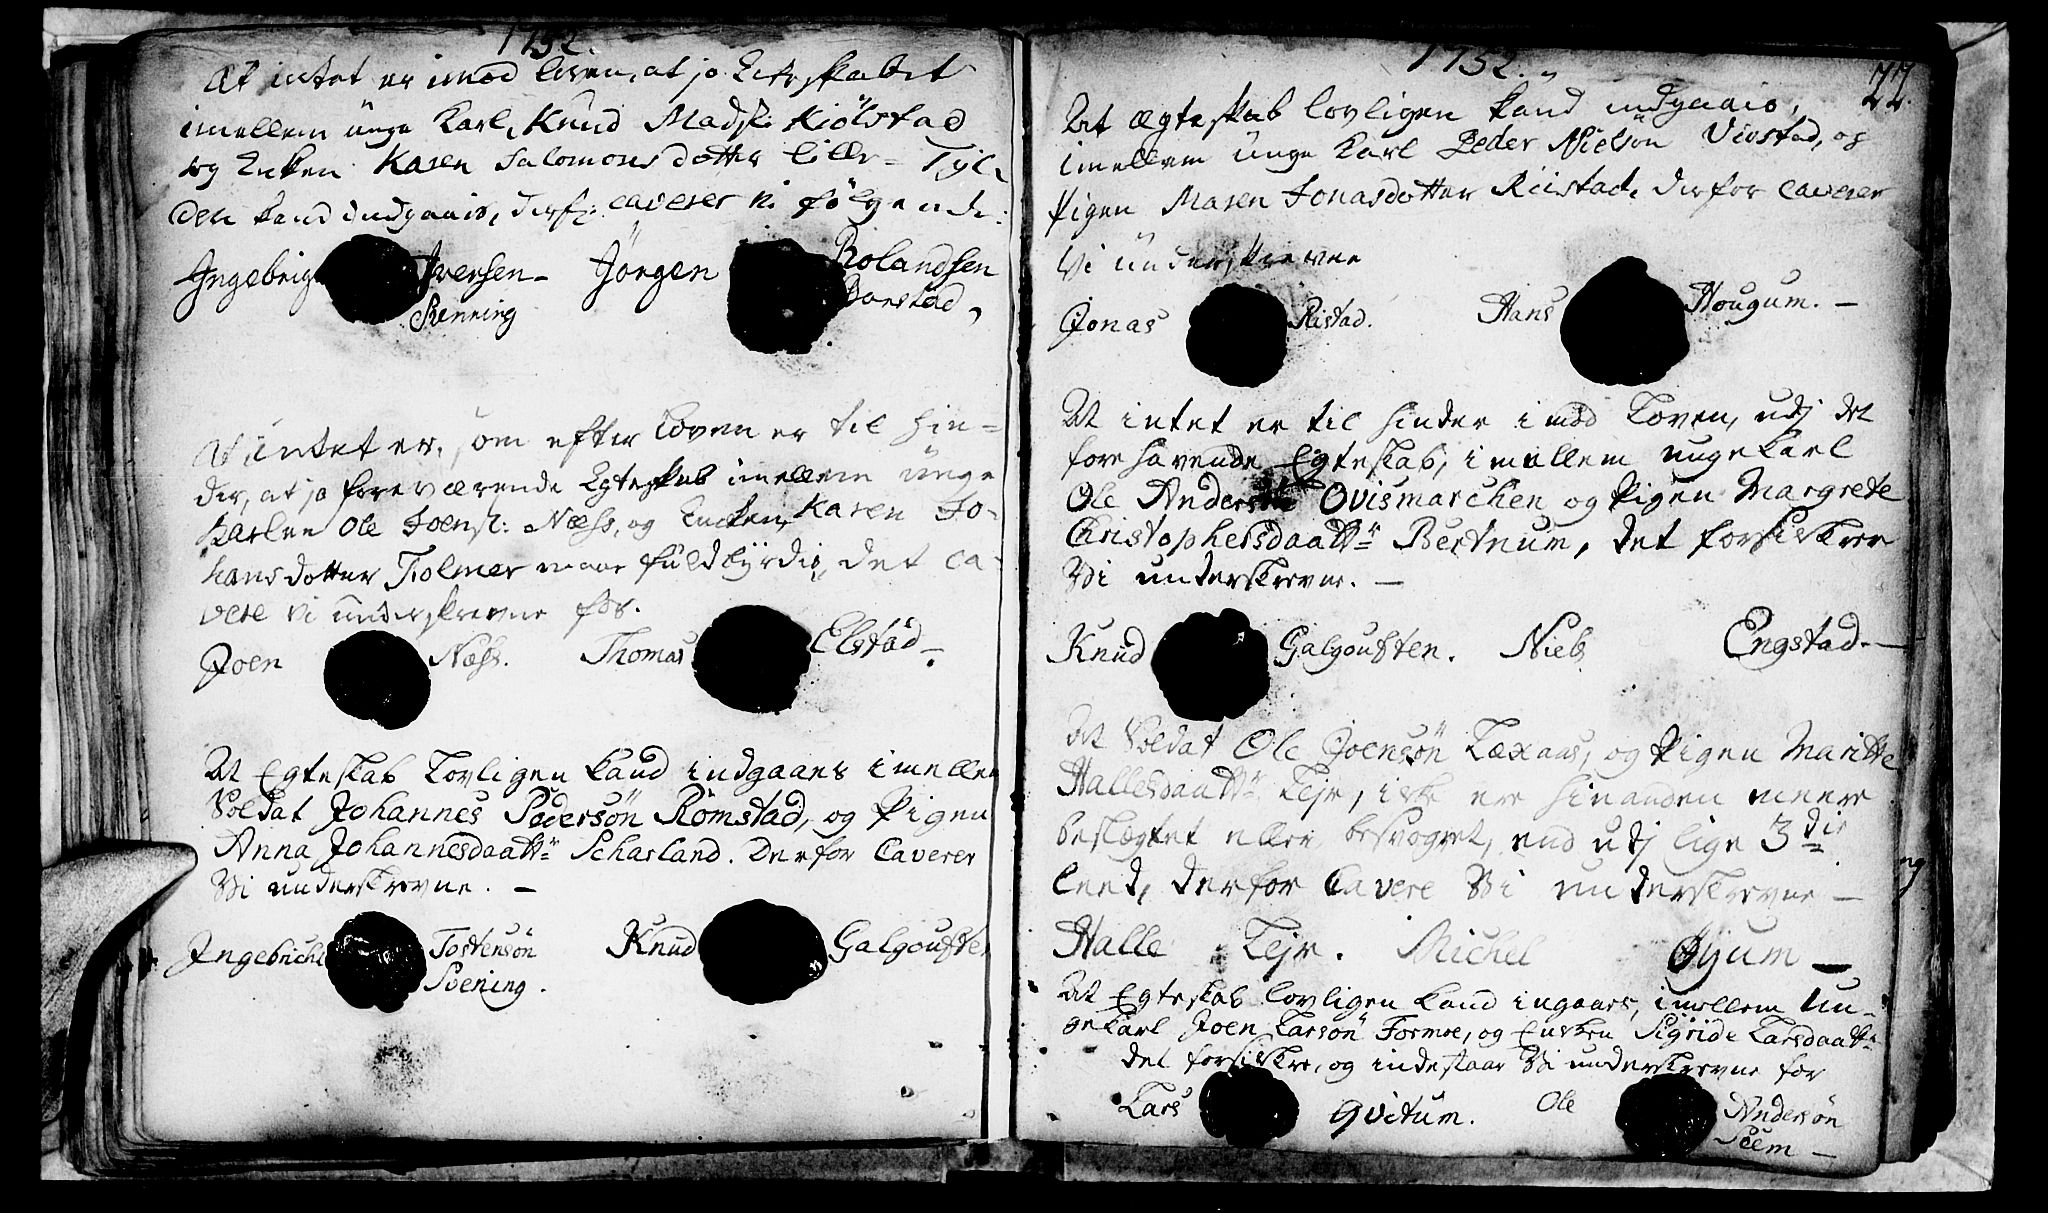 1752.
At intet er imod loven, at jo Ecteskabet
imellem unge Karl, Knud Madss: Kiölstad
og Enken Karen Salomonsdotter Lille-Tyl-
den kand indgaais, derf: caverer vi følgende:
Ingebrigt Iversen Jörgen Rolandsen
Renning Barstad,
At intet er, som efter Loven er til hin-
der, at jo foreværende Egteskab imellem unge
Karlen Ole Joens: Næss, og Encken Karen Jo-
hansdotter Tolmer maae fuldbyrdis, det ca-
vere vi underskrevne for.
Joen Næss. Thomas Elstad.
At Egteskab Lovligen kand indgaaes imellem
Soldat Johannes Pedersön Römstad, og Pigen
Anna Johannesdaattr Scharland. Derfor Caverer
Wi underskrevne. —
Ingebricht Tostensön Knud Galgouften
Soening.
1752.
77.
At ægteskab lovligen kand indgaais,
imellem unge Karl Peder Nielsön Vivstad, og
Pigen Maren Jonasdotter Riistad, derfor caverer
Vi underskrevne
Jonas Ristad. Hans Hougum. —
At intet er til hinder imod Loven, udj det
forehavende Egteskab, imellem unge Karl
Ole Andersön Qvismarchen og Pigen Margrete
Christophersdaattr Bertnum, det forsikrer
Wi underskrevne. —
Knud Galgouften. Niels Engstad. —
At Soldat Ole Joensön Laxaas, og Pigen Maritte
Hallesdaattr Lejr, icke ere hinanden meere
beslægtet eller besvogret, end udj lige 3die
leed, derfor Cavere Wi underskrevne —
Halle Lejr. Michel Øyum —
At Egteskab lovligen kand ingaaes, imellem Un-
gekarl Joen Larsön Formoe, og Encken Sigride Larsdaattr
det forsikre, og indestaar Wi underskrevne for
Lars Qvitum. Ole Andersön
Seem —